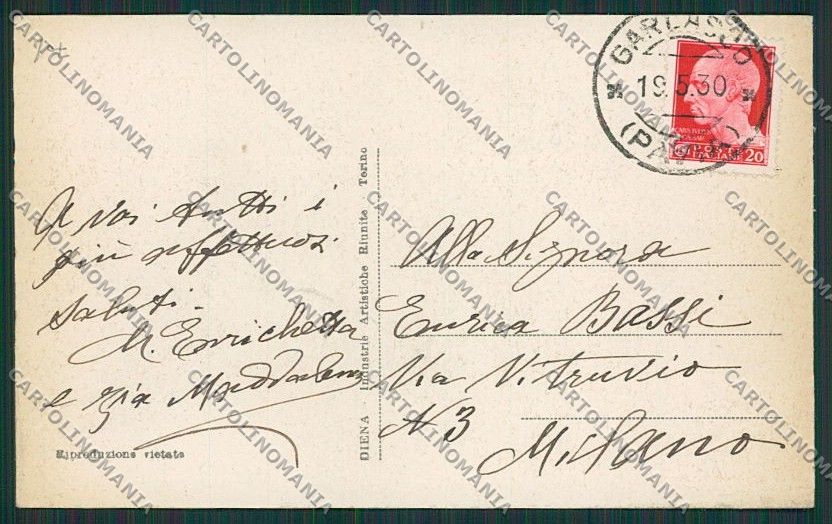 GARLASCO
19.5.30
(PAVIA)
POSTE
ITALIANE
20
A voi tutti i
più affettuosi
saluti.
M. Enrichetta
e zia Maddalena
Riproduzione vietata
DIENA Industrie Artistiche Riunite - Torino
Alla Signora
Enrica Bassi
Via Vitruvio
N 3
Milano
CARTOLINOMANIA